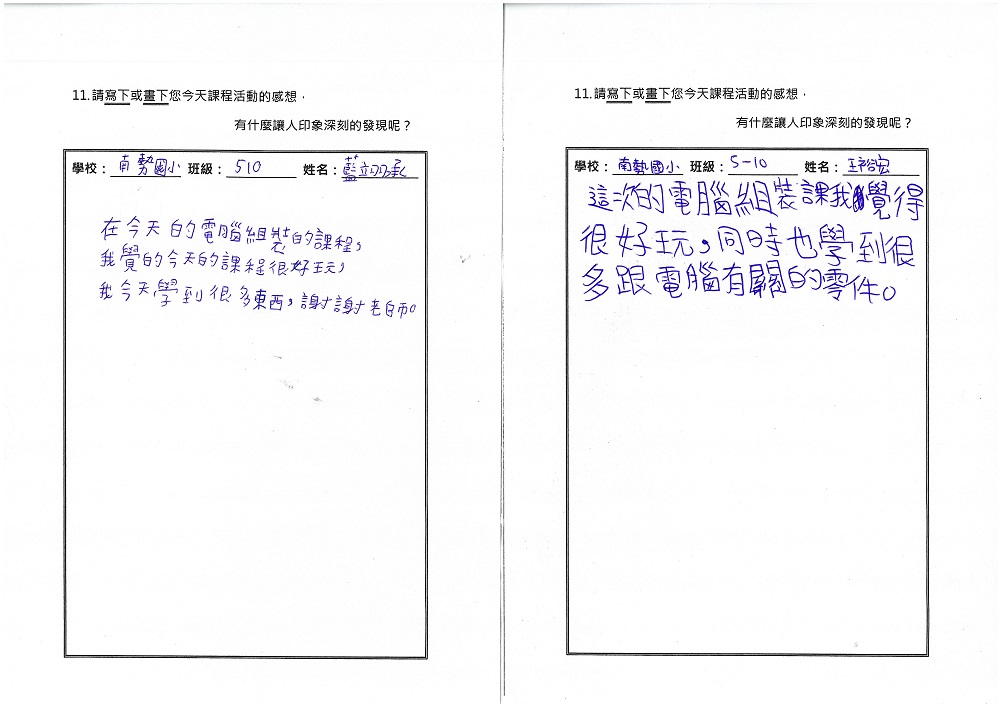 11.請寫下或畫下您今天課程活動的感想，
有什麼讓人印象深刻的發現呢？
學校：南勢國小 班級：510 姓名：藍立翃承
在今天的電腦組裝的課程，
我覺的今天的課程很好玩，
我今天學到很多東西，謝謝老師。
11.請寫下或畫下您今天課程活動的感想，
有什麼讓人印象深刻的發現呢？
學校：南勢國小 班級：5-10 姓名：王裕宏
這次的電腦組裝課我覺得
很好玩，同時也學到很
多跟電腦有關的零件。